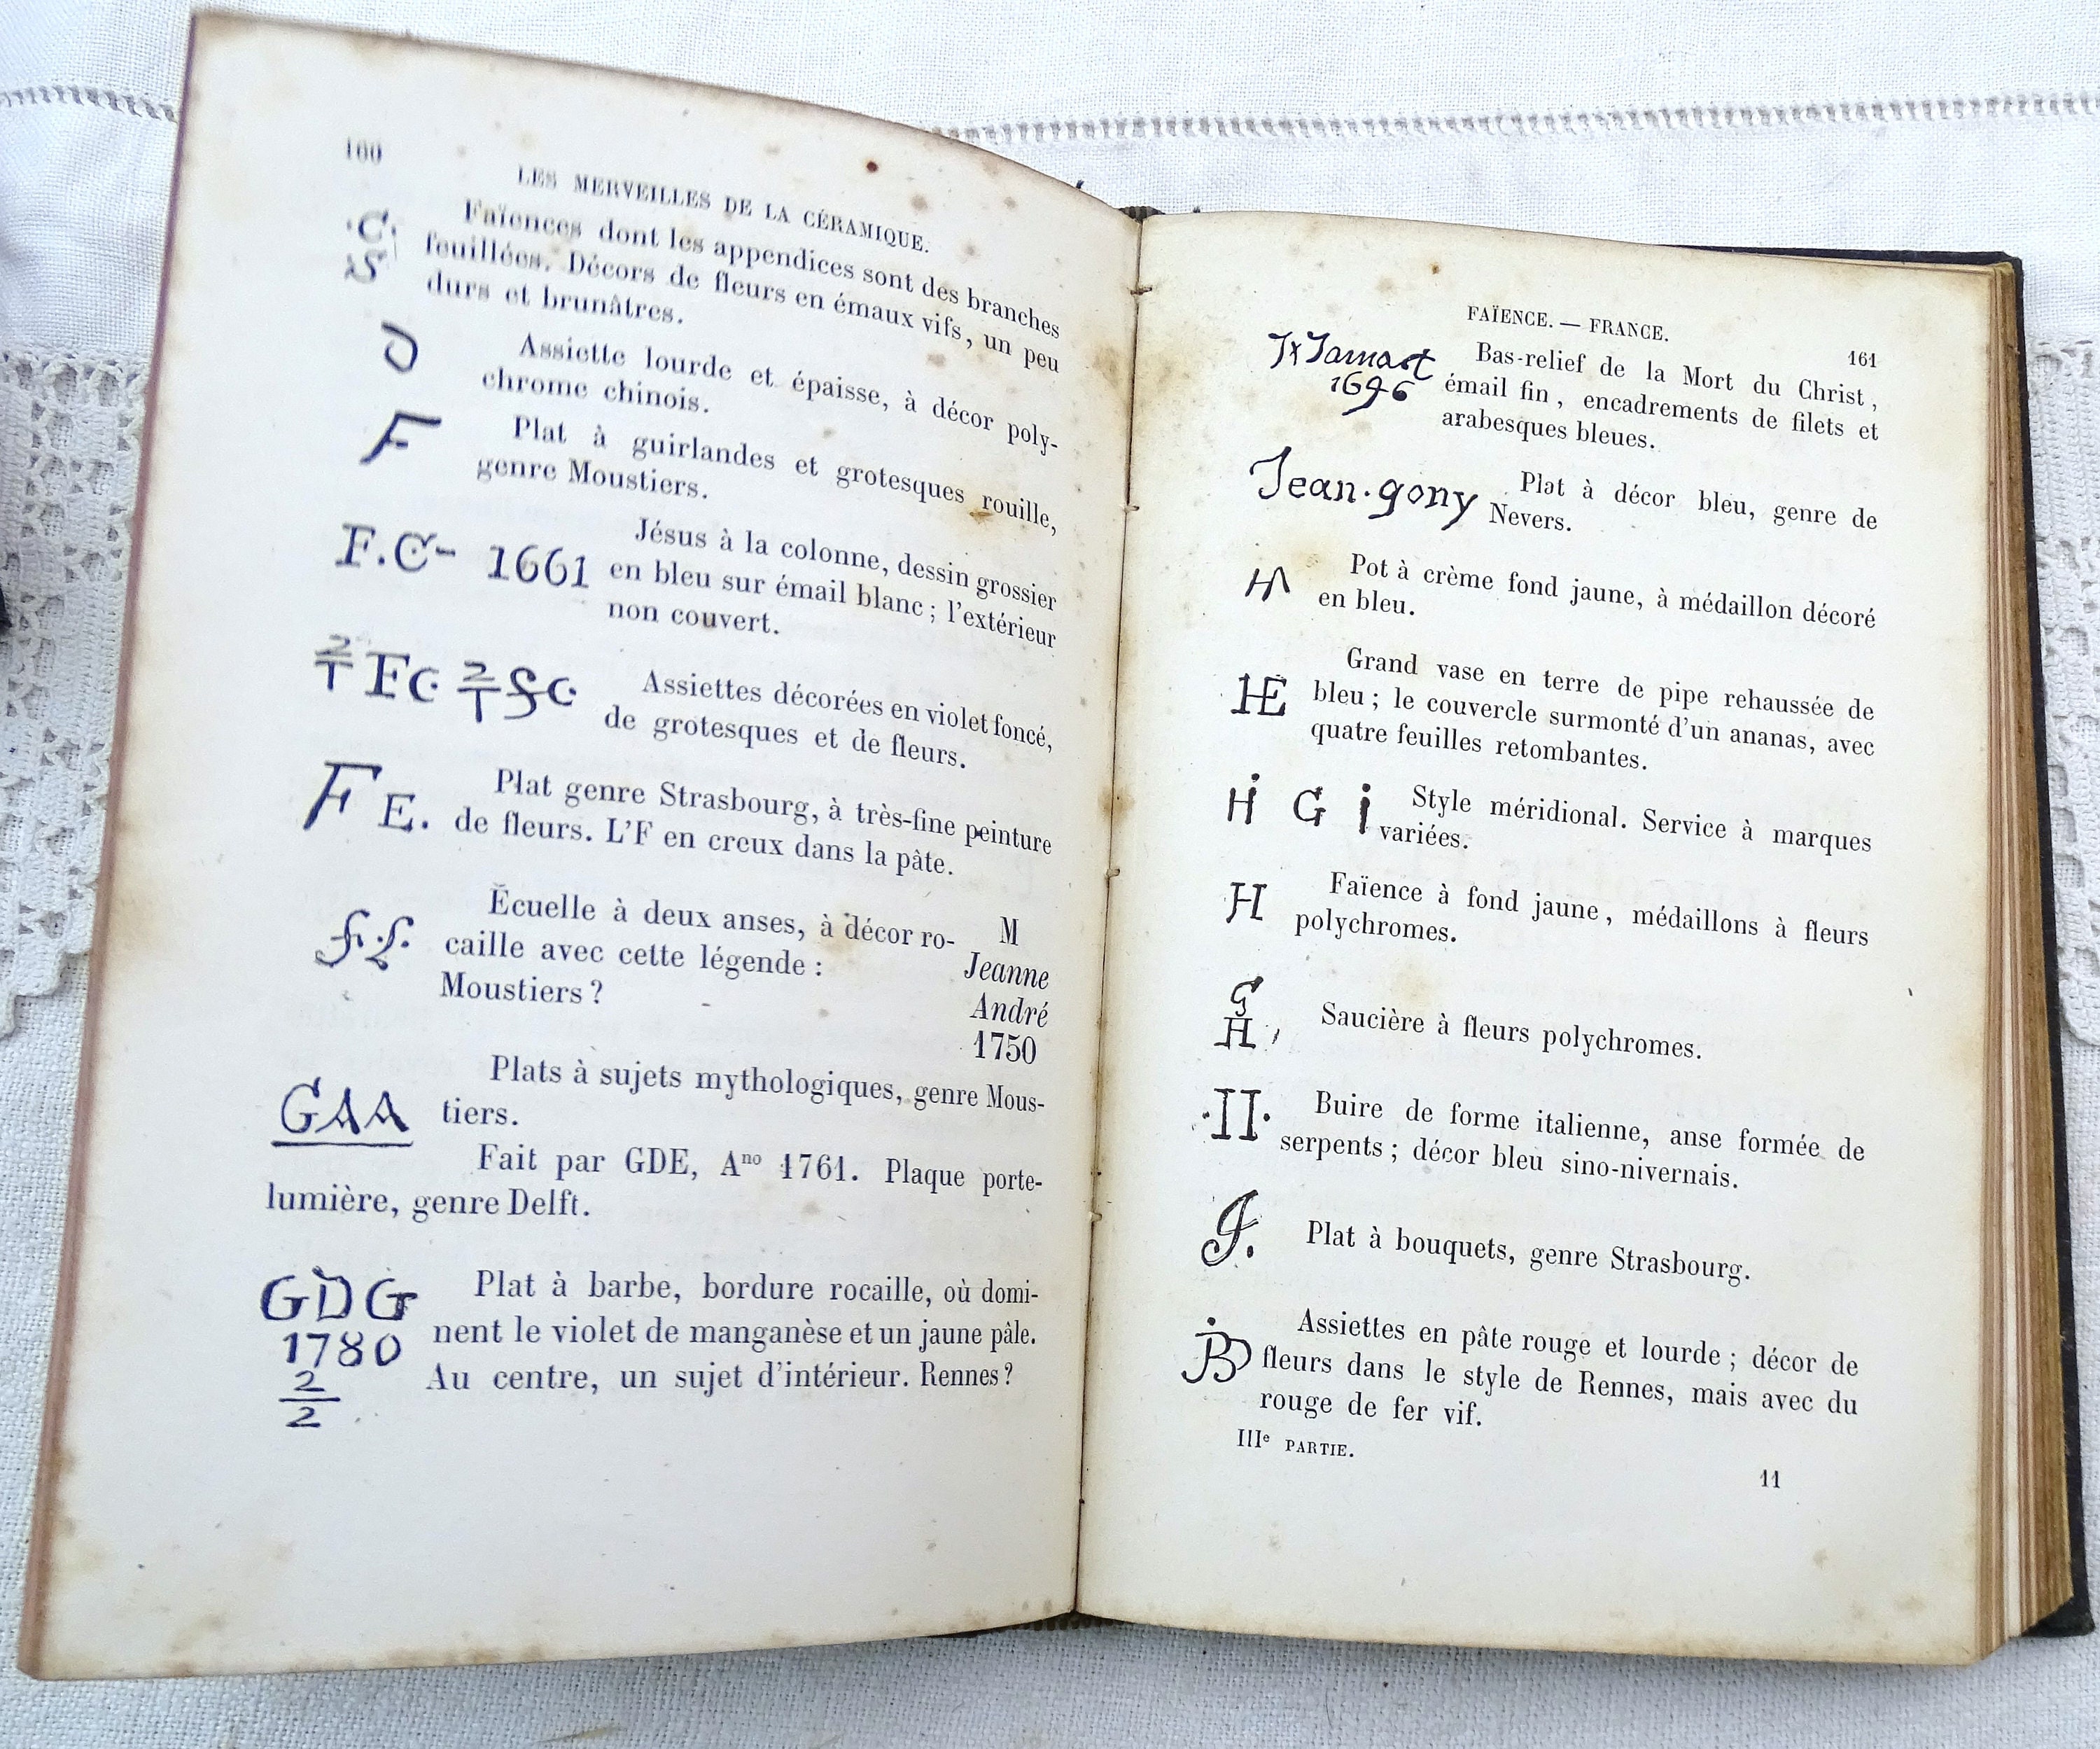 160
LES MERVEILLES DE LA CÉRAMIQUE.
.C.
S
Faïences dont les appendices sont des branches
feuillées. Décors de fleurs en émaux vifs, un peu
durs et brunâtres.
Assiette lourde et épaisse, à décor poly-
chrome chinois.
F
Plat à guirlandes et grotesques rouille,
genre Moustiers.
F.C- 1661
Jésus à la colonne, dessin grossier
en bleu sur émail blanc ; l'extérieur
non couvert.
2
T Fc 2
T
Assiettes décorées en violet foncé,
de grotesques et de fleurs.
F E.
Plat genre Strasbourg, à très-fine peinture
de fleurs. L'F en creux dans la pâte.
Écuelle à deux anses, à décor ro-
caille avec cette légende :
Moustiers ?
M
Jeanne
André
1750
GAA
Plats à sujets mythologiques, genre Mous-
tiers.
Fait par GDE, Ano 1761. Plaque porte-
lumière, genre Delft.
GDG
1780
2
2
Plat à barbe, bordure rocaille, où domi-
nent le violet de manganèse et un jaune pâle.
Au centre, un sujet d'intérieur. Rennes ?
FAÏENCE. — FRANCE.
161
1696
Bas-relief de la Mort du Christ,
émail fin, encadrements de filets et
arabesques bleues.
Jean.gony
Plat à décor bleu, genre de
Nevers.
Pot à crème fond jaune, à médaillon décoré
en bleu.
Grand vase en terre de pipe rehaussée de
bleu ; le couvercle surmonté d'un ananas, avec
quatre feuilles retombantes.
H G i
Style méridional. Service à marques
variées.
H
Faïence à fond jaune, médaillons à fleurs
polychromes.
H
Saucière à fleurs polychromes.
.II.
Buire de forme italienne, anse formée de
serpents ; décor bleu sino-nivernais.
J.
Plat à bouquets, genre Strasbourg.
Assiettes en pâte rouge et lourde ; décor de
fleurs dans le style de Rennes, mais avec du
rouge de fer vif.
IIIe PARTIE.
11